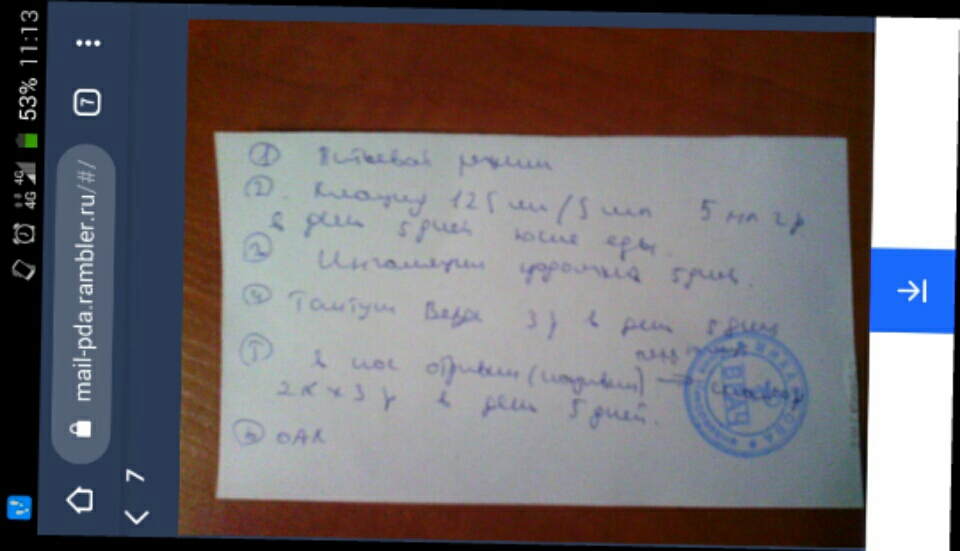 11:13
53%
4G 4G
7
mail-pda.rambler.ru/#/
7
① Питьевой режим
②. Клацид 125 мл/5 мл 5 мл 2 р
в день 5 дней после еды.
Ингаляции 5 дней.
④ Тантум Верде 3 р в день 5 дней
⑤ в нос отривин (називин) →
2 к х 3 р в день 5 дней.
ОАК
ВРАЧ